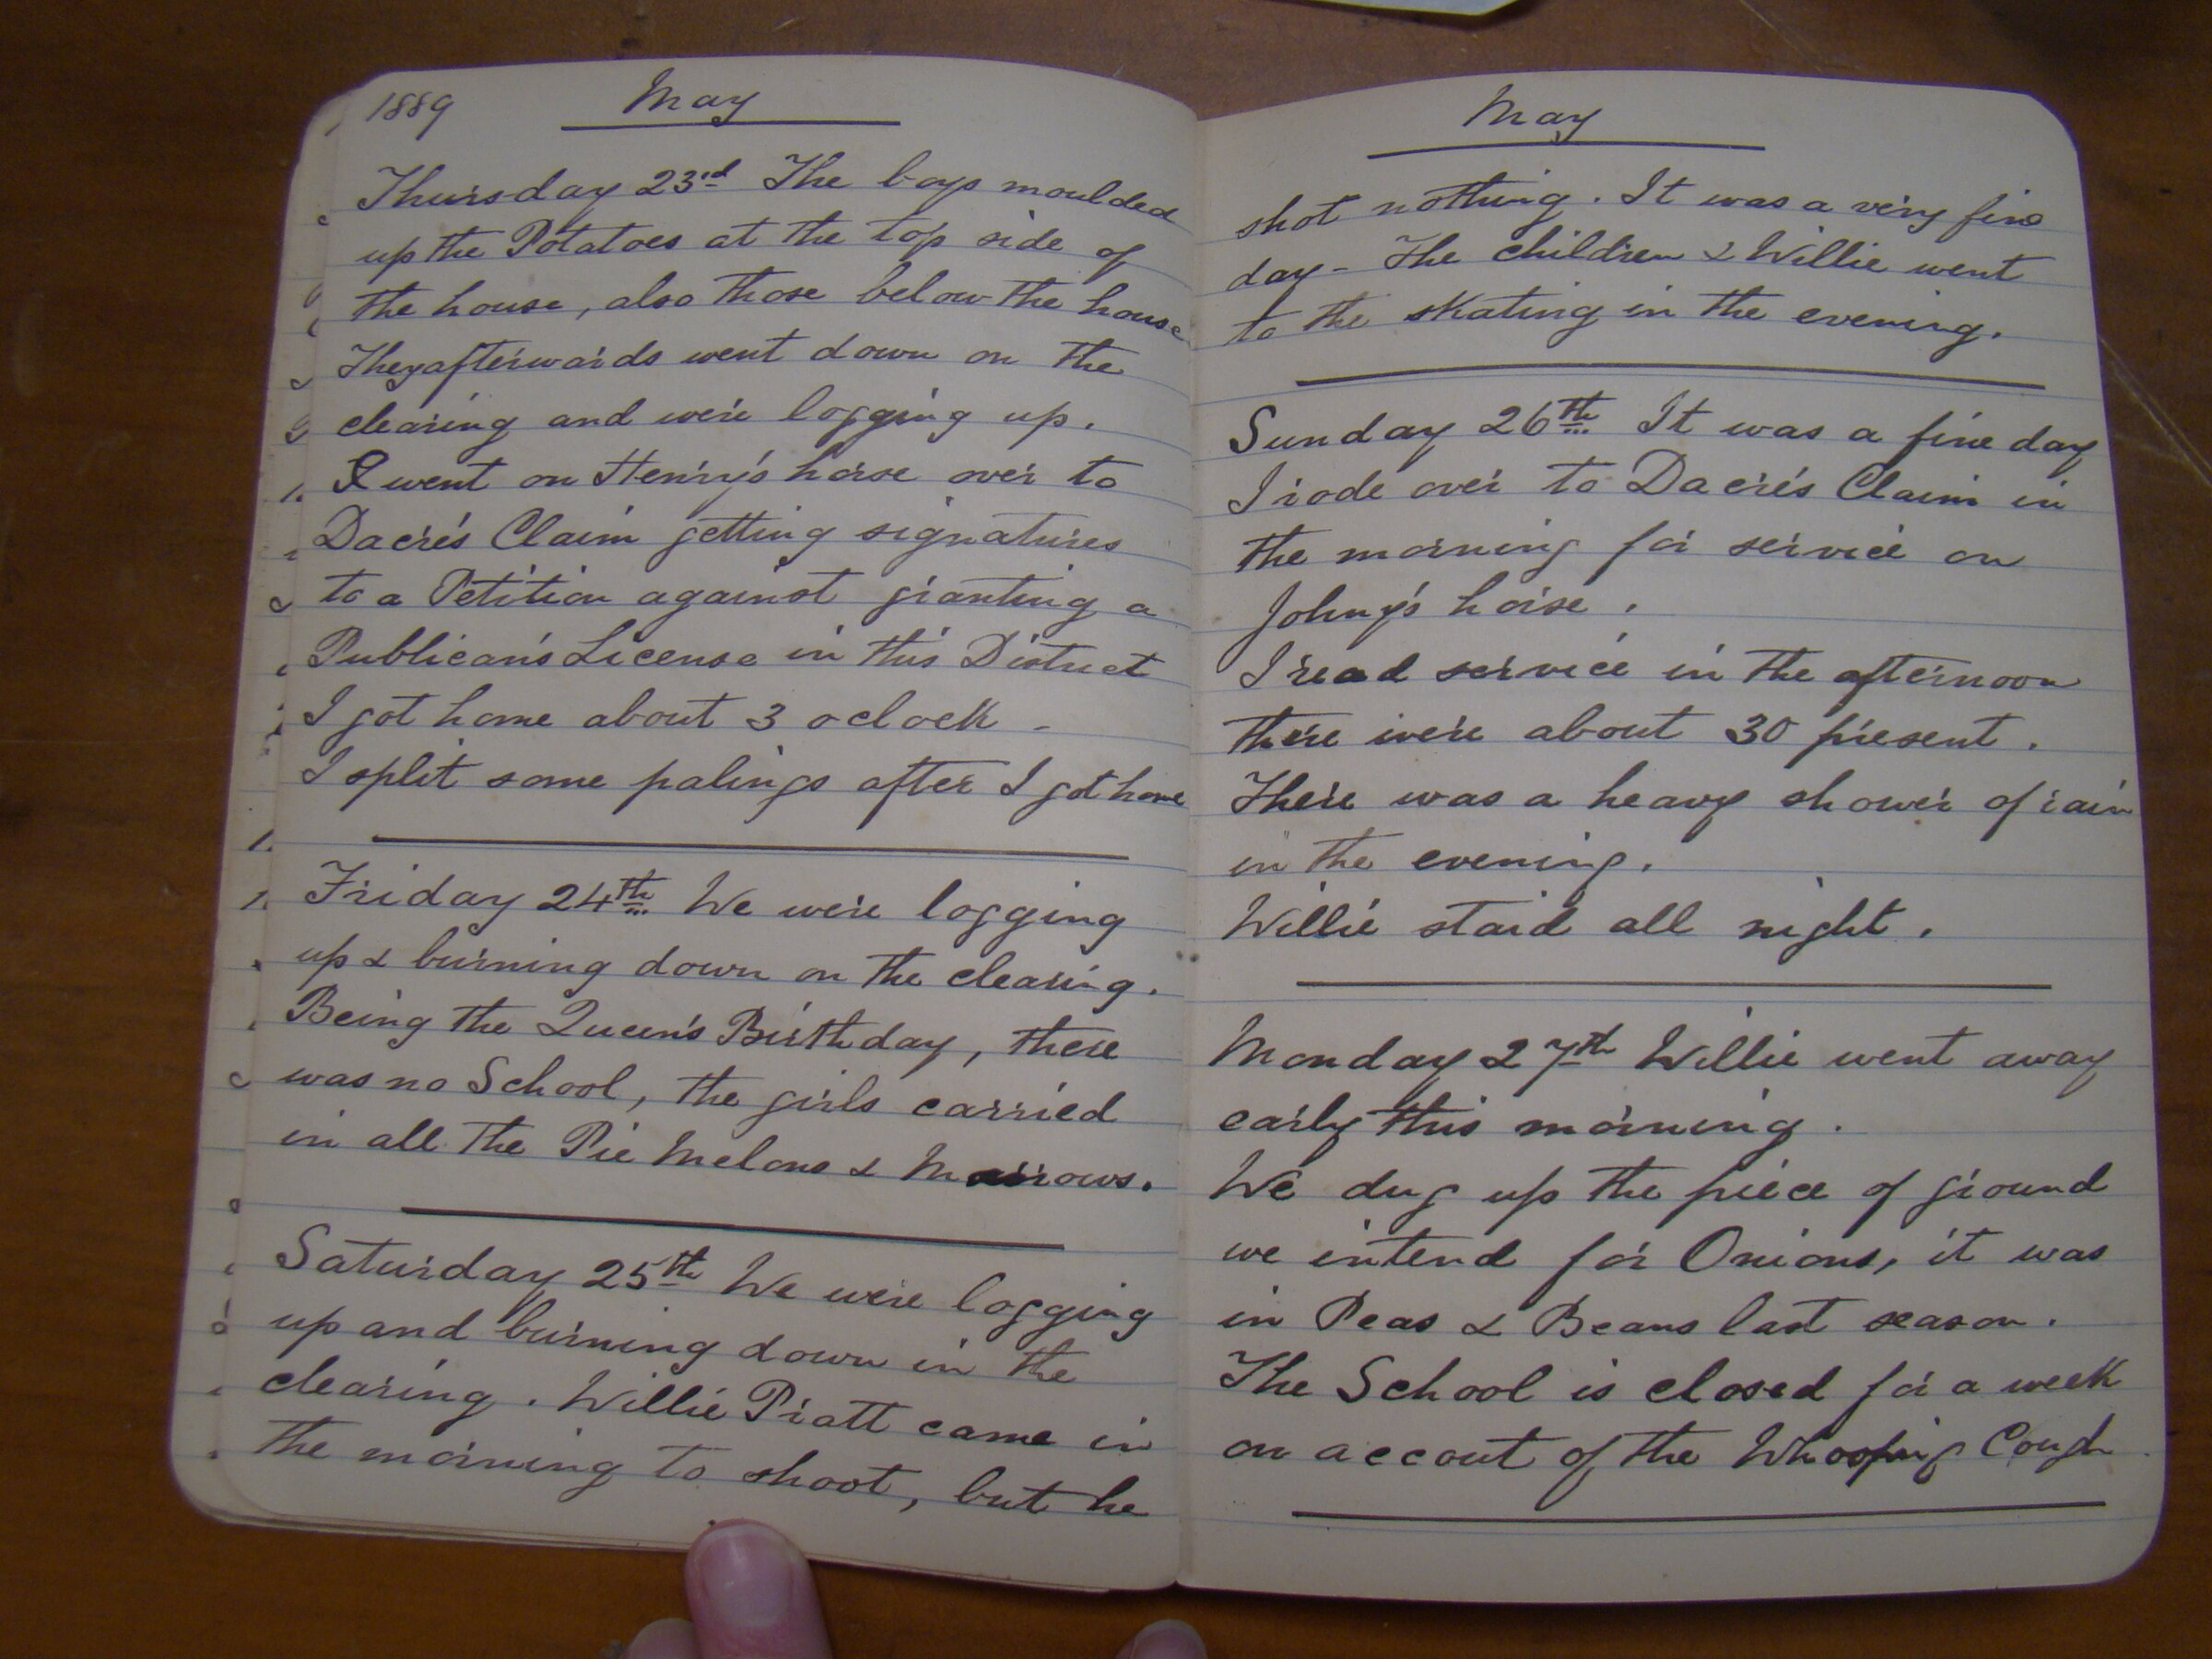 1889 May
Thursday 23rd The boys moulded
up the Potatoes at the top side of
the house, also those below the house
They afterwards went down on the
clearing and were logging up.
I went on Henry's horse over to
Dacre's Claim getting signatures
to a Petition against granting a
Publican's License in this District
I got home about 3 oclock -
I split some palings after I got home
Friday 24th We were logging
up & burning down on the clearing.
Being the Queen's Birthday, there
was no School, the girls carried
in all the Pie Melons & Marrows.
Saturday 25th We were logging
up and burning down in the
clearing. Willie Pratt came in
the morning to shoot, but he
May
shot nothing. It was a very fine
day - The children & Willie went
to the skating in the evening.
Sunday 26th It was a fine day
I rode over to Dacre's Claim in
the morning for service on
Johny's horse.
I read service in the afternoon
there were about 30 present.
There was a heavy shower of rain
in the evening.
Willie staid all night.
Monday 27th Willie went away
early this morning.
We dug up the piece of ground
we intend for Onions, it was
in Peas & Beans last season.
The School is closed for a week
on accout of the Whooping Cough